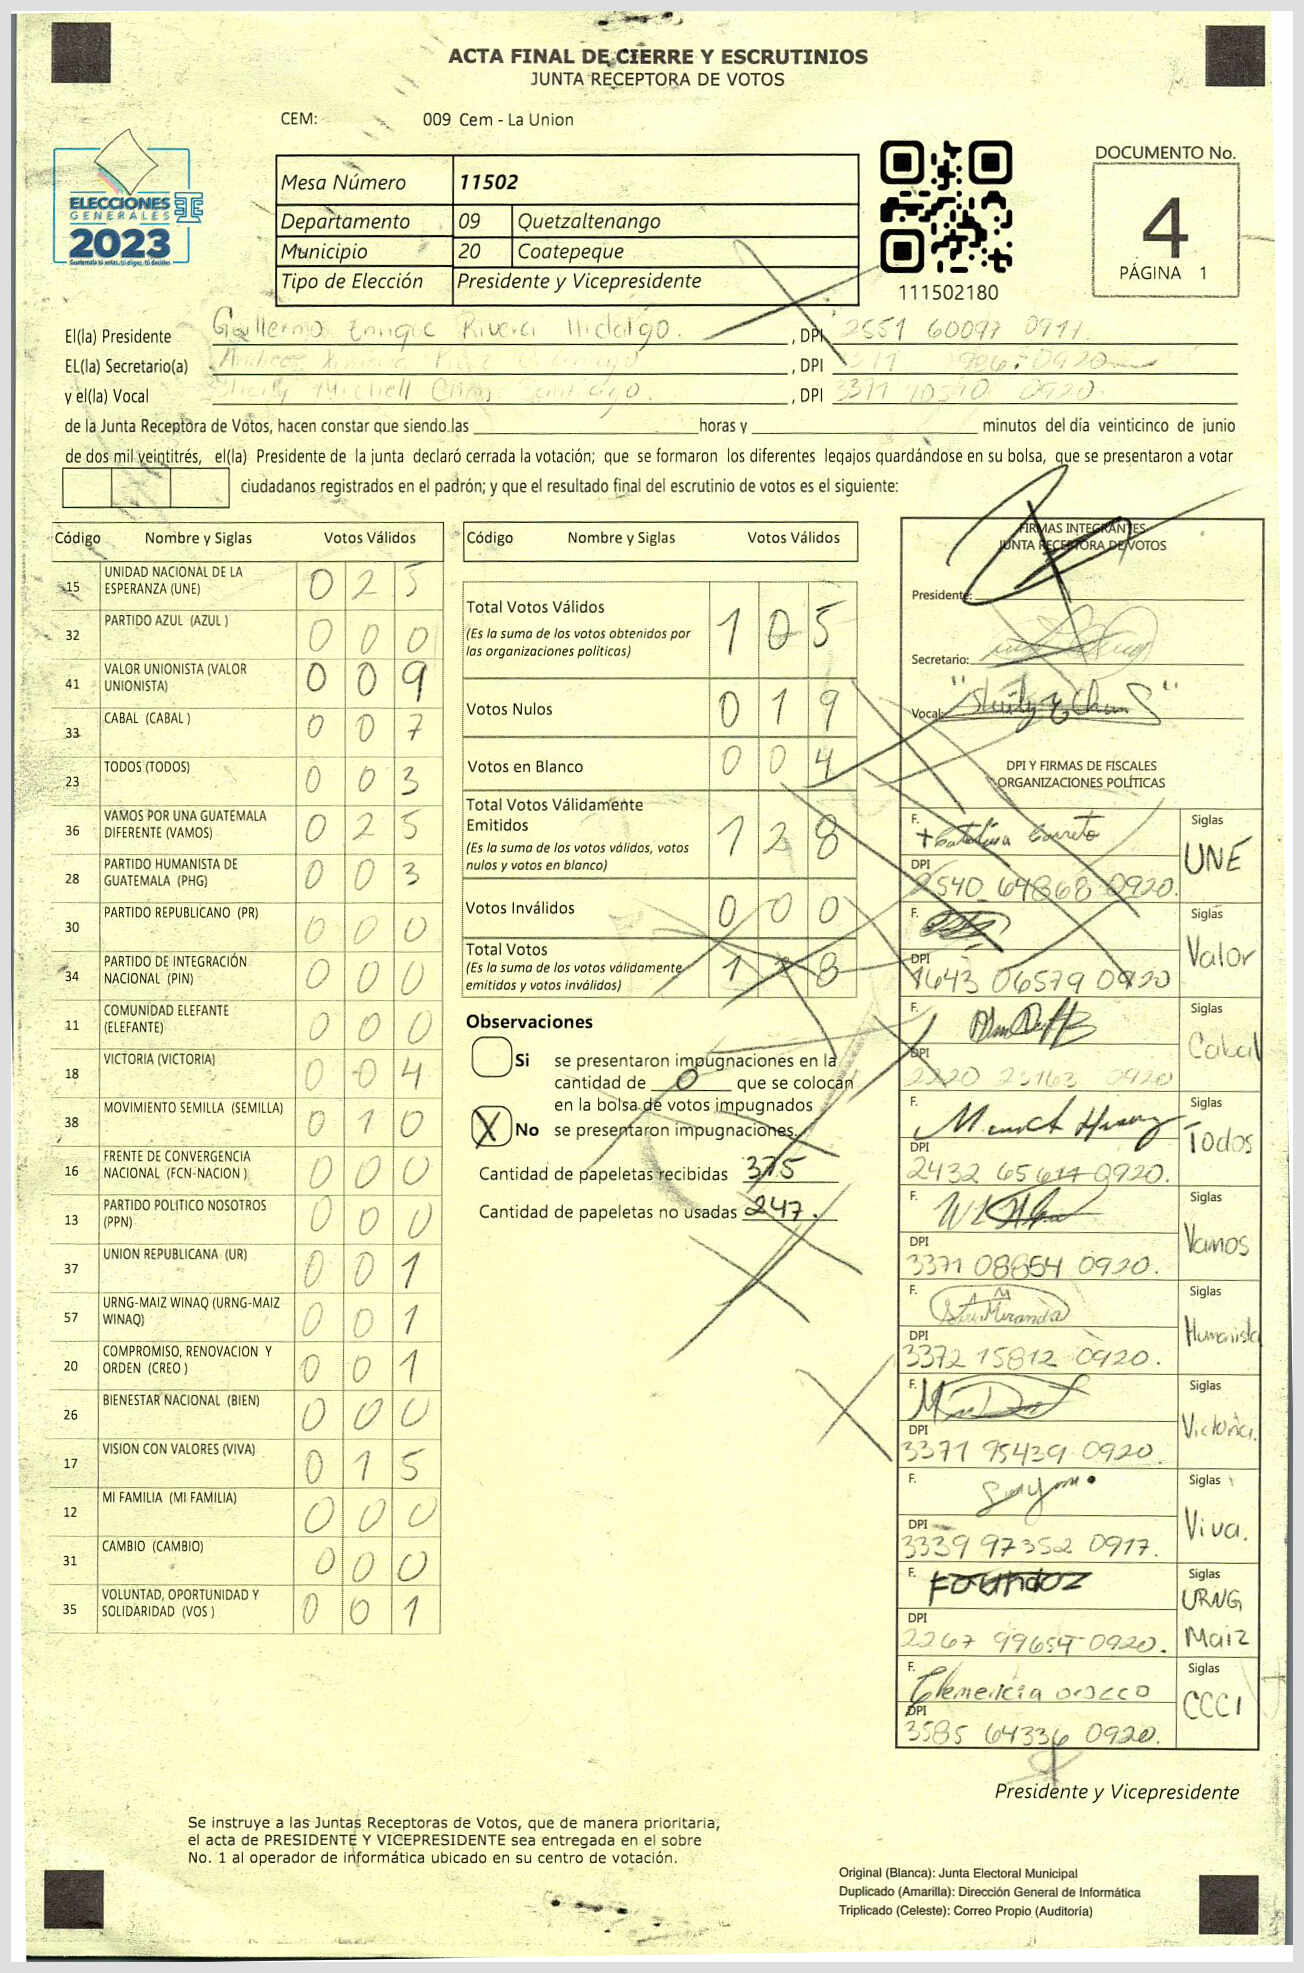 ACTA FINAL DE CIERRE Y ESCRUTINIOS
JUNTA RECEPTORA DE VOTOS
CEM: 009 Cem - La Union
ELECCIONES
GENERALES
2023
Guatemala tú votas, tú eliges, tú decides
Mesa Número 11502
Departamento 09 Quetzaltenango
Municipio 20 Coatepeque
Tipo de Elección Presidente y Vicepresidente
111502180
DOCUMENTO No.
4
PÁGINA 1
El(la) Presidente Guillermo Enrique Rivera Hidalgo. , DPI 2551 60097 0911.
EL(la) Secretario(a) , DPI 0920
y el(la) Vocal Mitchell Santiago. , DPI 3371 10510 0920.
de la Junta Receptora de Votos, hacen constar que siendo las horas y minutos del día veinticinco de junio
de dos mil veintitrés, el(la) Presidente de la junta declaró cerrada la votación; que se formaron los diferentes legajos guardándose en su bolsa, que se presentaron a votar
ciudadanos registrados en el padrón; y que el resultado final del escrutinio de votos es el siguiente:
Código Nombre y Siglas Votos Válidos
15 UNIDAD NACIONAL DE LA ESPERANZA (UNE) 0 2 5
32 PARTIDO AZUL (AZUL ) 0 0 0
41 VALOR UNIONISTA (VALOR UNIONISTA) 0 0 9
33 CABAL (CABAL ) 0 0 7
23 TODOS (TODOS) 0 0 3
36 VAMOS POR UNA GUATEMALA DIFERENTE (VAMOS) 0 2 5
28 PARTIDO HUMANISTA DE GUATEMALA (PHG) 0 0 3
30 PARTIDO REPUBLICANO (PR) 0 0 0
34 PARTIDO DE INTEGRACIÓN NACIONAL (PIN) 0 0 0
11 COMUNIDAD ELEFANTE (ELEFANTE) 0 0 0
18 VICTORIA (VICTORIA) 0 0 4
38 MOVIMIENTO SEMILLA (SEMILLA) 0 1 0
16 FRENTE DE CONVERGENCIA NACIONAL (FCN-NACION ) 0 0 0
13 PARTIDO POLITICO NOSOTROS (PPN) 0 0 0
37 UNION REPUBLICANA (UR) 0 0 1
57 URNG-MAIZ WINAQ (URNG-MAIZ WINAQ) 0 0 1
20 COMPROMISO, RENOVACION Y ORDEN (CREO ) 0 0 1
26 BIENESTAR NACIONAL (BIEN) 0 0 0
17 VISION CON VALORES (VIVA) 0 1 5
12 MI FAMILIA (MI FAMILIA) 0 0 0
31 CAMBIO (CAMBIO) 0 0 0
35 VOLUNTAD, OPORTUNIDAD Y SOLIDARIDAD (VOS ) 0 0 1
Código Nombre y Siglas Votos Válidos
Total Votos Válidos 1 0 5
(Es la suma de los votos obtenidos por
las organizaciones políticas)
Votos Nulos 0 1 9
Votos en Blanco 0 0 4
Total Votos Válidamente
Emitidos 1 2 8
(Es la suma de los votos válidos, votos
nulos y votos en blanco)
Votos Inválidos 0 0 0
Total Votos 1 2 8
(Es la suma de los votos válidamente
emitidos y votos inválidos)
Observaciones
Si se presentaron impugnaciones en la
cantidad de 0 que se colocan
en la bolsa de votos impugnados
X No se presentaron impugnaciones.
Cantidad de papeletas recibidas 375
Cantidad de papeletas no usadas 247.
FIRMAS INTEGRANTES
JUNTA RECEPTORA DE VOTOS
Presidente:
Secretario:
Vocal:
DPI Y FIRMAS DE FISCALES
ORGANIZACIONES POLÍTICAS
F. Siglas
UNE
DPI 2540 64868 0920.
F. Siglas
Valor
DPI 1643 06579 0920
F. Siglas
Cabal
DPI 2220 23163 0920
F. Siglas
Todos
DPI 2432 0920.
F. Siglas
Vamos
DPI 3371 08854 0920.
F. Miranda Siglas
Humanista
DPI 3372 15812 0920.
F. Siglas
Victoria.
DPI 3371 95439 0920.
F. Siglas
Viva.
DPI 3339 97352 0917.
F. Siglas
URNG
Maiz
DPI 2267 99654 0920.
F. Clemencia orozco Siglas
CCCI
DPI 3585 64336 0920.
Presidente y Vicepresidente
Se instruye a las Juntas Receptoras de Votos, que de manera prioritaria,
el acta de PRESIDENTE Y VICEPRESIDENTE sea entregada en el sobre
No. 1 al operador de informática ubicado en su centro de votación.
Original (Blanca): Junta Electoral Municipal
Duplicado (Amarilla): Dirección General de Informática
Triplicado (Celeste): Correo Propio (Auditoría)